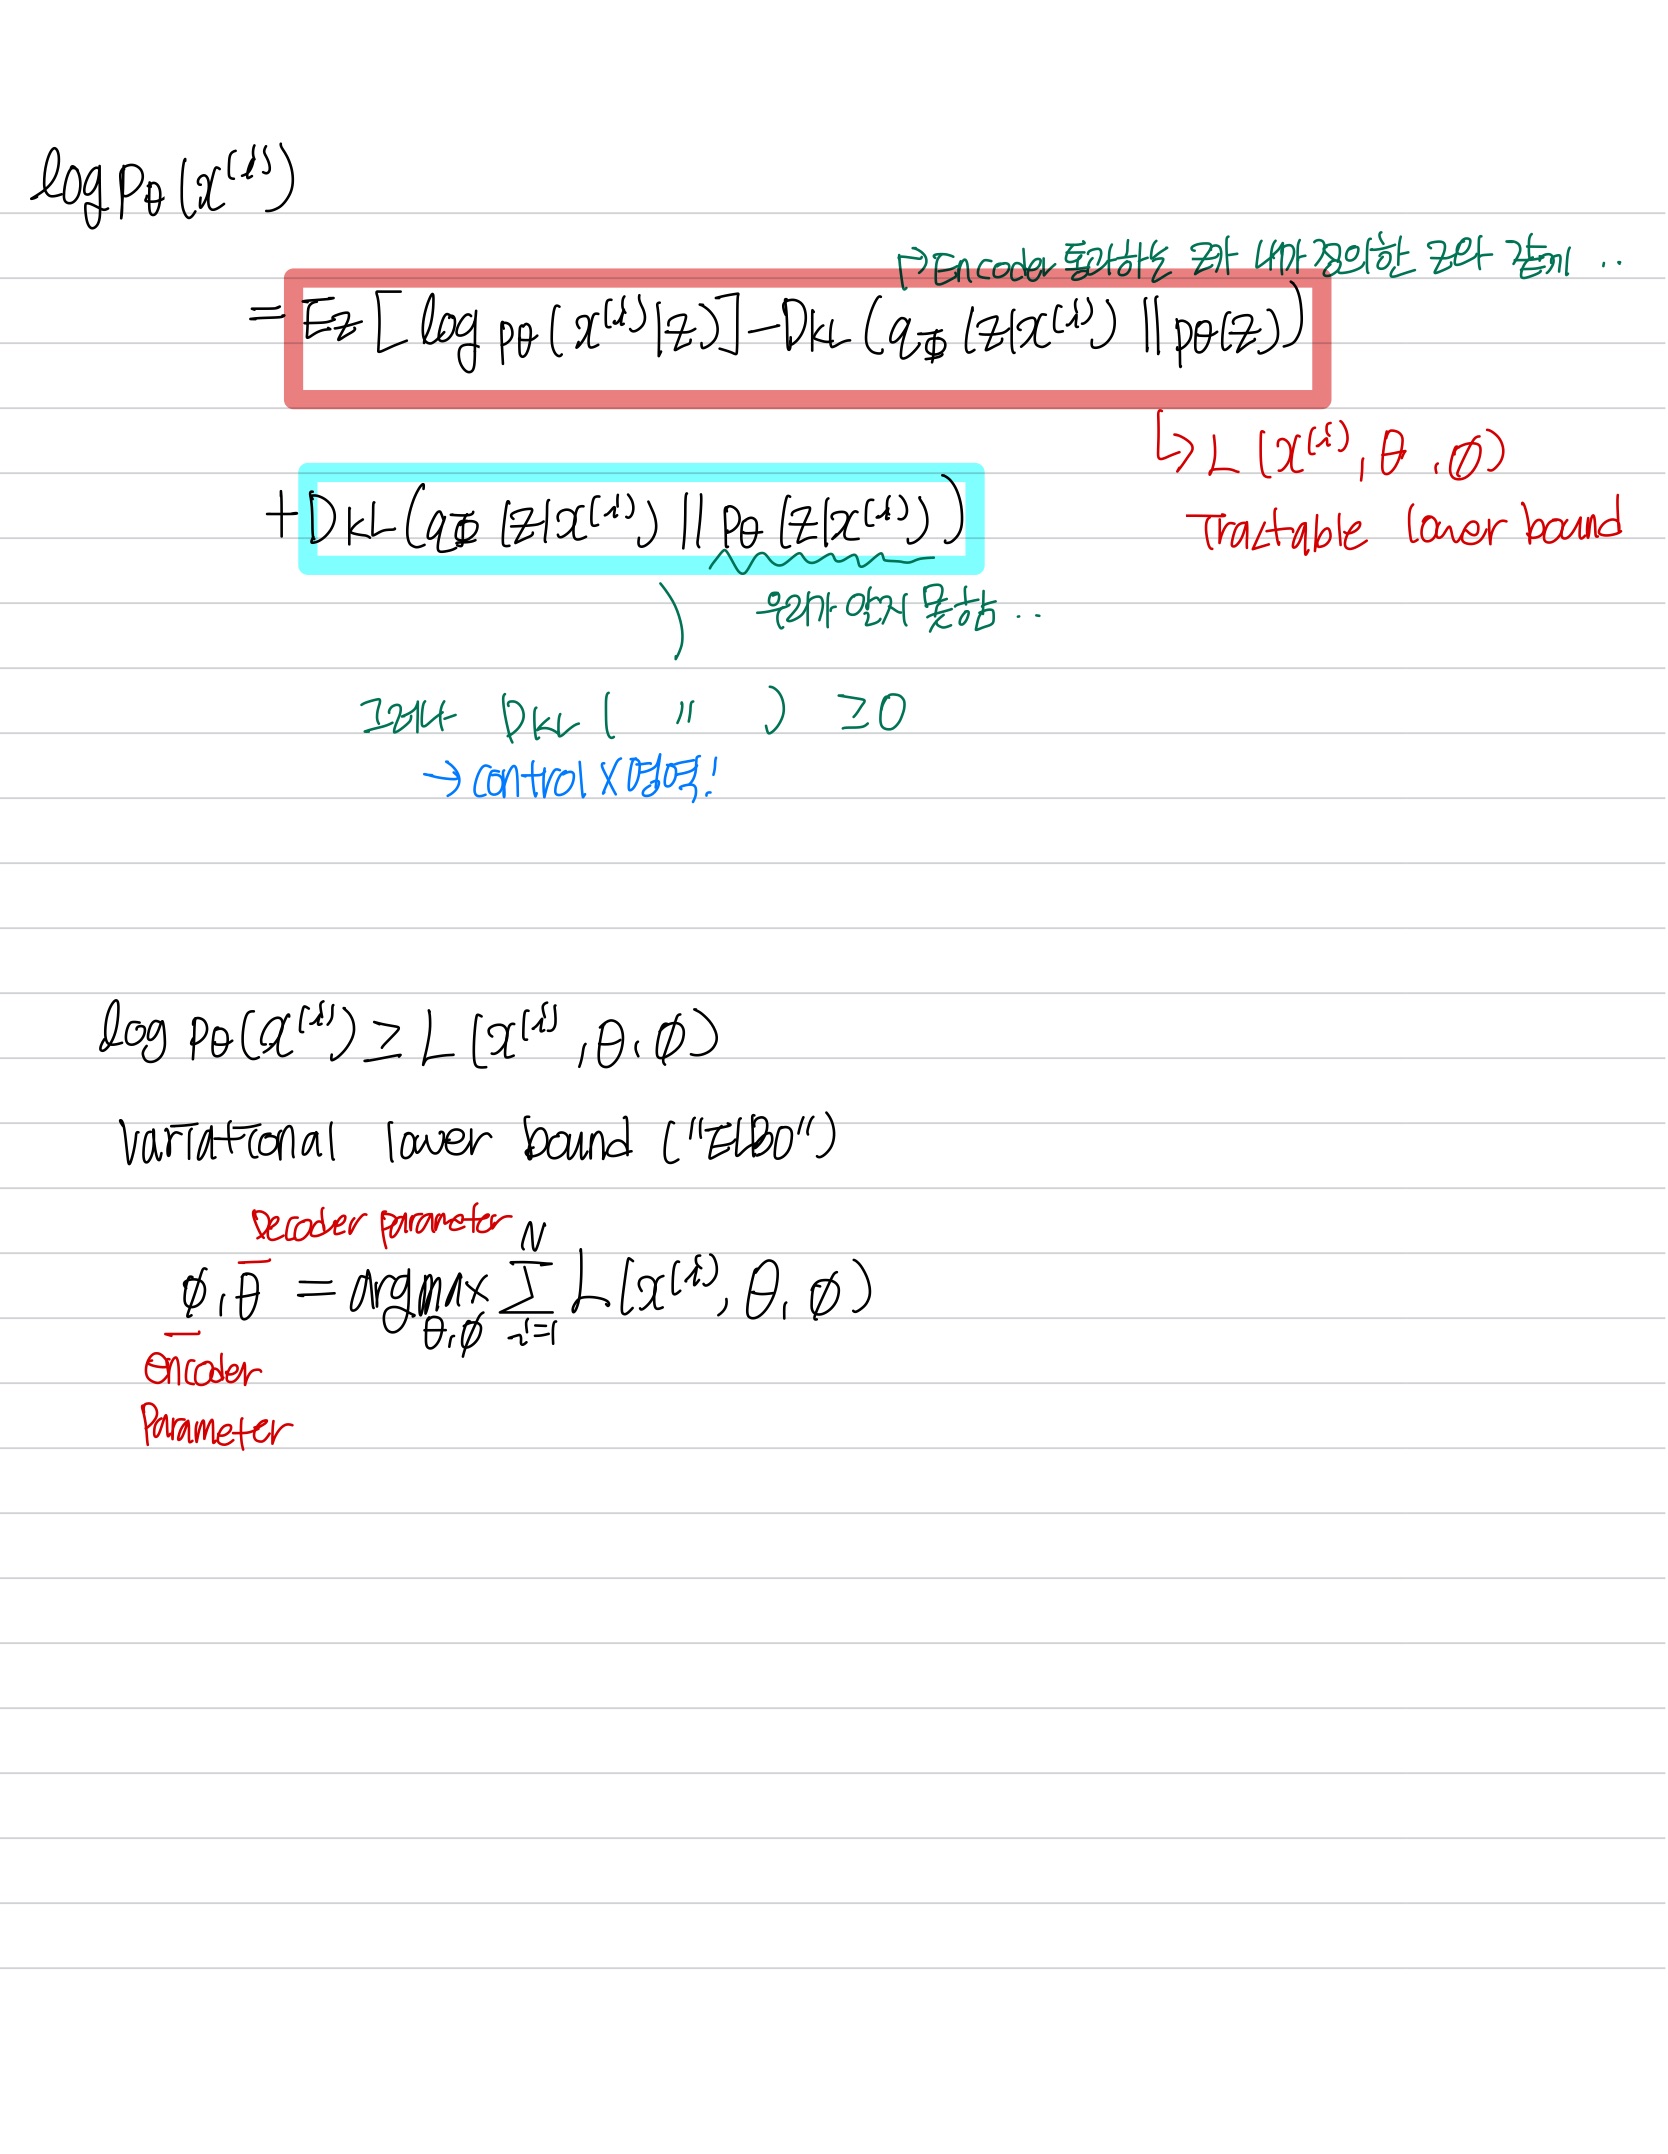 log pθ(x⁽ⁱ⁾)
↱ Encoder 통과하는 Z가 내가 정의한 Z와 같게 ..
= Ez[log pθ(x⁽ⁱ⁾|z)] − DKL(qΦ(z|x⁽ⁱ⁾) || pθ(z))
↳ L(x⁽ⁱ⁾, θ, ϕ)
+ DKL(qΦ(z|x⁽ⁱ⁾) || pθ(z|x⁽ⁱ⁾))
Tractable lower bound
우리가 알지 못함 ..
그러나 DKL( 〃 ) ≥ 0
→ control X 영역!
log pθ(x⁽ⁱ⁾) ≥ L(x⁽ⁱ⁾, θ, ϕ)
Variational lower bound ("ELBO")
Decoder parameter
ϕ, θ = argmax θ,ϕ Σ i=1 N L(x⁽ⁱ⁾, θ, ϕ)
encoder
Parameter